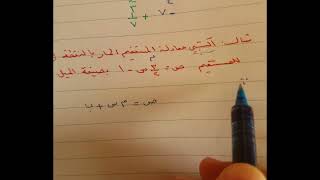 ٧ - + ٥/٧
مثال: اكتبي معادلة المستقيم المار بالنقطة
للمستقيم ص = ٣/٢ س - ١ بصيغة الميل
ص = م س + ب